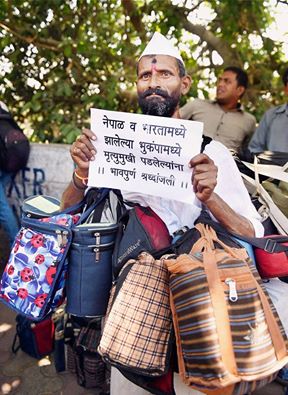 नेपाळ व भारतामध्ये
झालेल्या भुकंपामध्ये
मृत्युमुखी पडलेल्यांना
।। भावपुर्ण श्रध्दांजली ।।